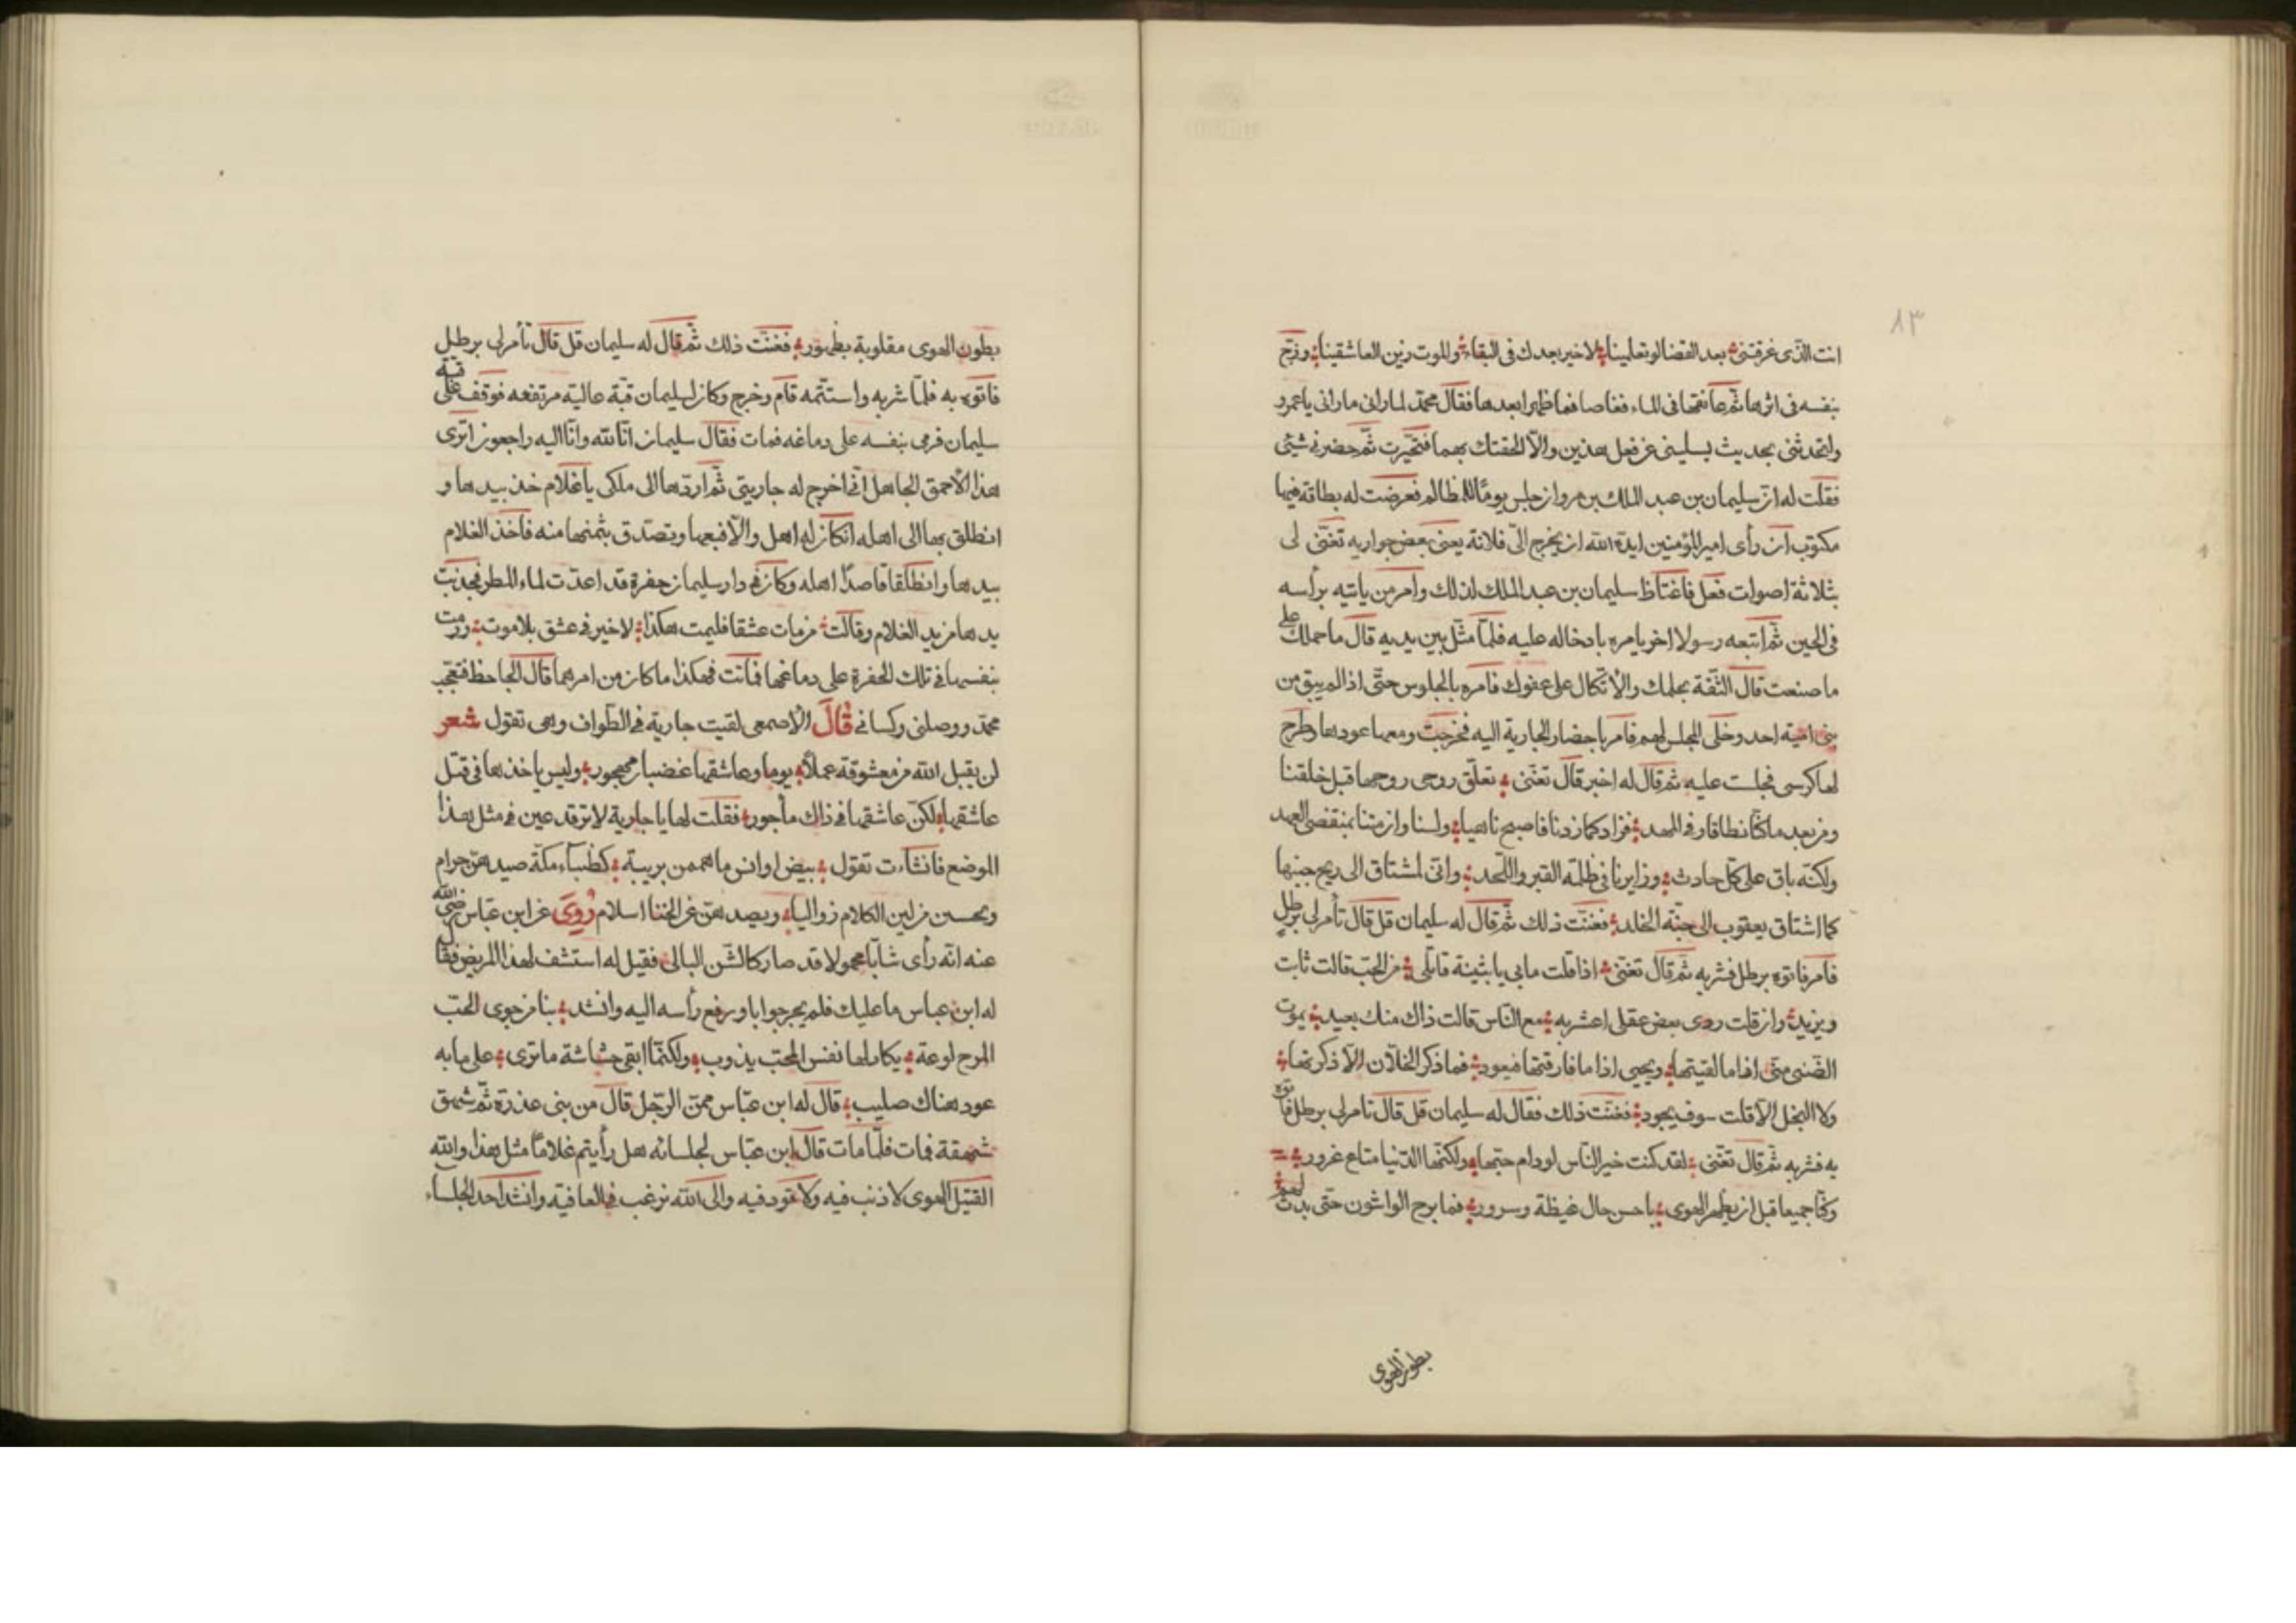 ٨٣
انت الذى غرقتنى بعد القضا لو تعلمينا لا خير بعدك فى البقاء والموت زين العاشقينا وزج
بنفسه فى اثرها ثم عانقها فى الماء فغاصا فما ظهرا بعدها فقال محمد لما رانى ما رانى يا عمرو
واتحدثنى بحديث يسلينى عن فعل هذين والا الحقتك بهما فتحيرت ثم حضرنى شئ
فقلت له ان سليمان بن عبد الملك بن مروان جلس يوما للمظالم فعرضت له بطاقة فيها
مكتوب ان رأى امير المؤمنين ايده الله ان يخرج الى فلانة يعنى بعض جواريه تغنى لى
بثلاثة اصوات فعل فاغتاظ سليمان بن عبد الملك لذلك وامر من ياتيه برأسه
فى الحين ثم اتبعه رسولا اخر يامره بادخاله عليه فلما مثل بين يديه قال ما حملك على
ما صنعت قال الثقة بحلمك والاتكال على عفوك فامره بالجلوس حتى اذا لم يبق من
بنى امية احد وخلى المجلس لهم فامر باحضار الجارية اليه فخرجت ومعها عودها وطرح
لها كرسى فجلست عليه ثم قال له اخبر قال تغنى تعلق روحى روحها قبل خلقنا
ومن بعد ما كنا نطافا وفى المهد فزاد كما زدنا فاصبح ناميا ولسنا وان متنا بمنقضى العهد
ولكنه باق على كل حادث وزايرنا فى ظلمة القبر واللحد وانى لمشتاق الى ريح جيبها
كما اشتاق يعقوب الى جنة الخلد فغنت ذلك ثم قال له سليمان قل قال تأمر لى برطل
فامر فاتوه برطل فشربه ثم قال تغنى اذا قلت ما بى يا بثينة قاتلى من الحب قالت ثابت
ويزيد وان قلت ردى بعض عقلى اعش به مع الناس قالت ذاك منك بعيد يموت
الضنى متى اذا ما لقيتها ويحيى اذا ما فارقتها فيعود فما ذكر الخلان الا ذكرتها
ولا البخل الا قلت سوف يجود فغنت ذلك فقال له سليمان قل قال تامر لى برطل فاتوه
به فشربه ثم قال تغنى لقد كنت خير الناس لو دام حبها ولكنها الدنيا متاع غرور
وكنا جميعا قبل ان يظهر الهوى باحسن حال غبطة وسرور فما برح الواشون حتى بدت لهم
بطون الهوى
بطون الهوى مقلوبة بظهور فغنت ذلك ثم قال له سليمان قل قال تأمر لى برطل
فاتوه به فلما شربه واستتمه قام وخرج وكان لسليمان قبة عالية مرتفعه فوقف على قبة
سليمان فرمى بنفسه على دماغه فمات فقال سليمان انا لله وانا اليه راجعون اترى
هذا الاحمق الجاهل انى اخرج له جاريتى ثم اردها الى ملكى يا غلام خذ بيدها و
انطلق بها الى اهله ان كان له اهل والا فبعها وتصدق بثمنها منه فاخذ الغلام
بيدها وانطلقا قاصدا اهله وكان فى دار سليمان حفرة قد اعدت لماء المطر فجذبت
يدها من يد الغلام وقالت من مات عشقا فليمت هكذا لا خير فى عشق بلا موت ورمت
بنفسها فى تلك الحفرة على دماغها فماتت فهكذا ما كان من امرهما قال الجاحظ فتعجب
محمد ووصلنى وكسانى قال الاصمعى لقيت جارية فى الطواف وهى تقول شعر
لن يقبل الله من معشوقة عملا يوما وعاشقها غضبان مهجور وليس ياخذها فى قتل
عاشقها لكن عاشقها فى ذاك مأجور فقلت لها يا جارية لا ترقد عين فى مثل هذا
الموضع فانشاءت تقول بيض اوانس ما هممن بريبة كظباء مكة صيدهن حرام
ويحسبن من لين الكلام زوانيا ويصدهن عن الخنا اسلام روى عن ابن عباس رضى الله
عنه انه رأى شابا محمولا قد صار كالشن البالى فقيل له استشف لهذا المريض فقال
له ابن عباس ما عليك فلم يحر جوابا ورفع رأسه اليه وانشد بنا من جوى الحب
المبرح لوعة يكاد لها نفس المحب يذوب ولكنما ابقى حشاشة ما ترى على ما به
عود هناك صليب قال له ابن عباس ممن الرجل قال من بنى عذرة ثم شهق
شهقة فمات فلما مات قال ابن عباس لجلسائه هل رأيتم غلاما مثل هذا والله
القتيل الهوى لا ذنب فيه ولا قود فيه والى الله نرغب فى العافيه وانشد احد الجلساء